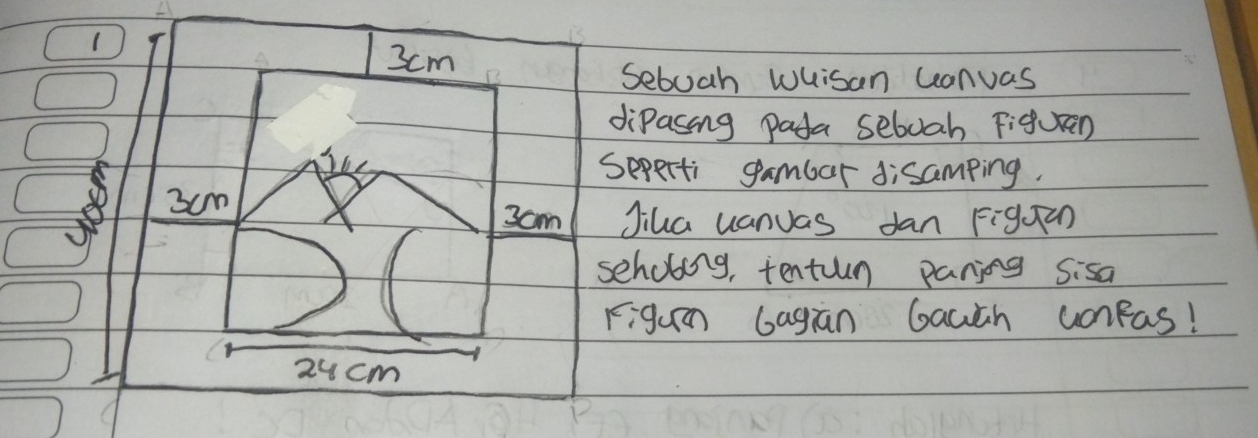 1
A
B
3cm
A
B
3cm
3cm
40cm
24cm
Sebuah wuisan uanvas
dipasang pada sebuah Figuran
Seperti gambar disamping.
Jiua uanvas dan Figuran
sebubng, tentuun panjang sisa
Figuran bagian bawah uonfas!